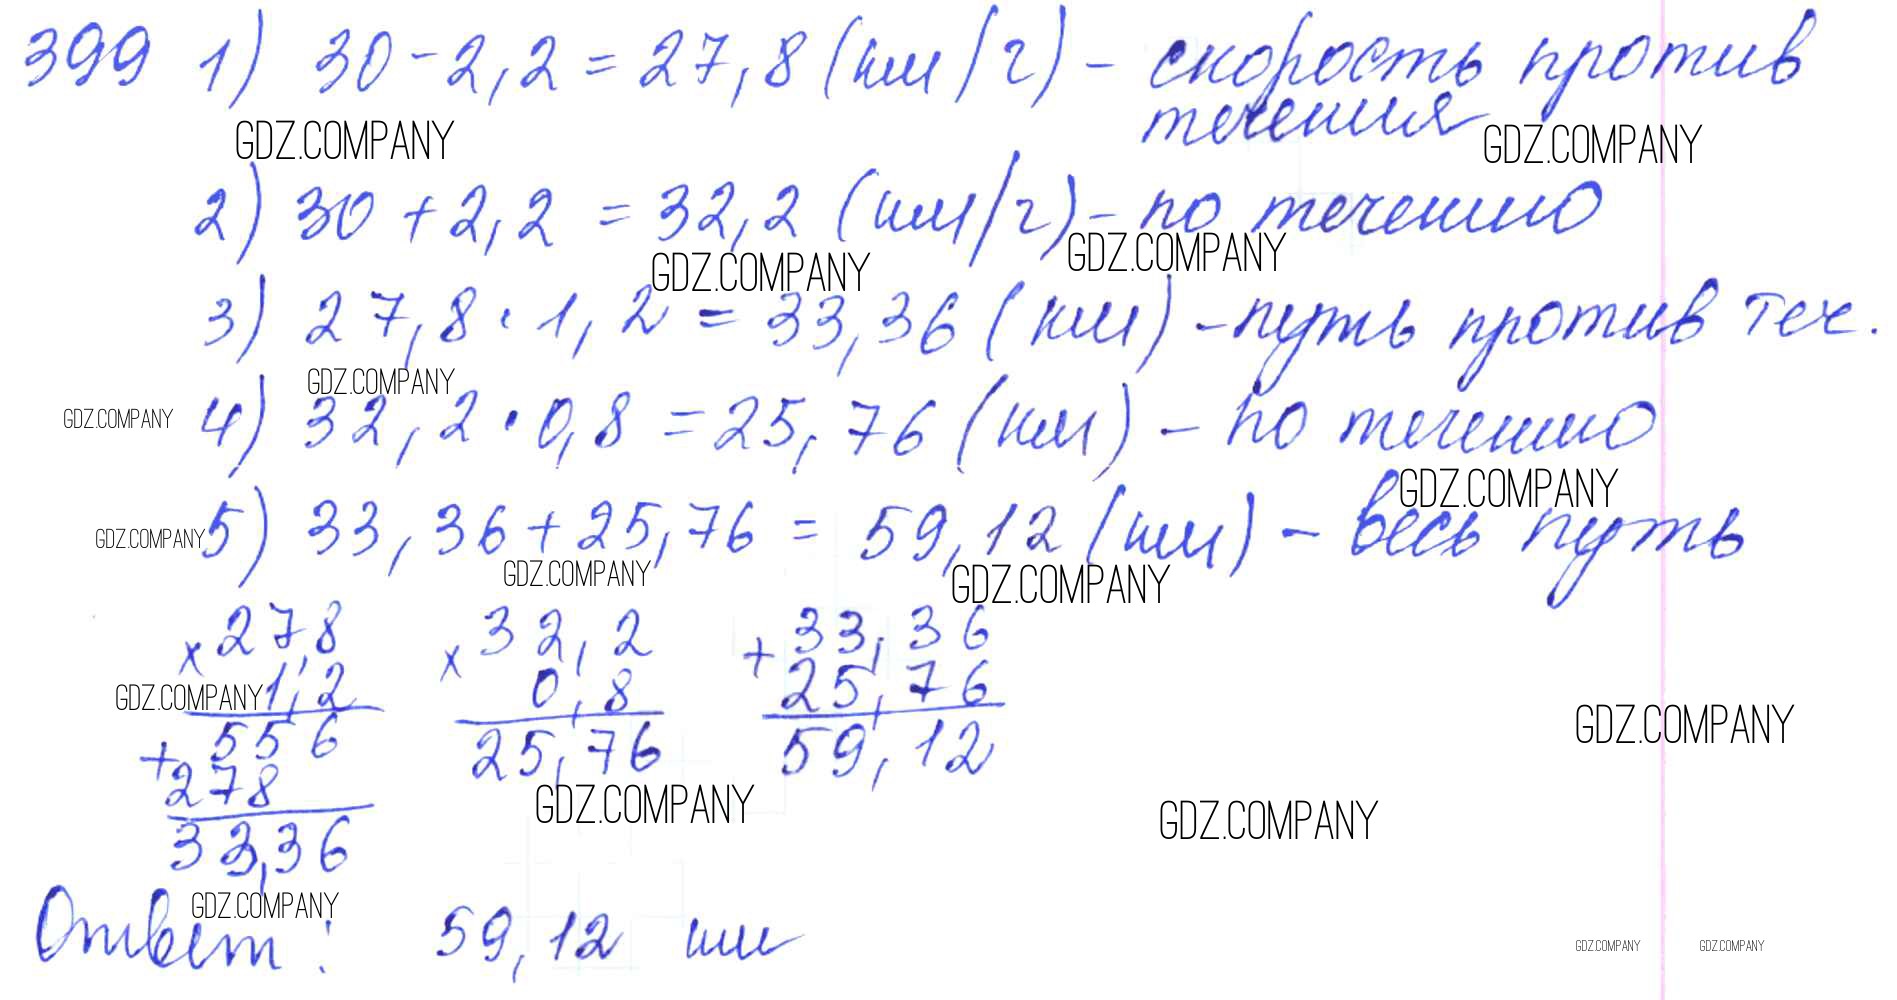 399 1) 30 - 2,2 = 27,8 (км/г) - скорость против
течения
GDZ.COMPANY GDZ.COMPANY
2) 30 + 2,2 = 32,2 (км/г) - по течению
GDZ.COMPANY GDZ.COMPANY
3) 27,8 · 1,2 = 33,36 (км) - путь против теч.
GDZ.COMPANY
GDZ.COMPANY 4) 32,2 · 0,8 = 25,76 (км) - по течению
GDZ.COMPANY
GDZ.COMPANY 5) 33,36 + 25,76 = 59,12 (км) - весь путь
GDZ.COMPANY GDZ.COMPANY
× 27,8 × 32,2 + 33,36
GDZ.COMPANY 1,2 0,8 25,76
+ 556 25,76 59,12 GDZ.COMPANY
278
GDZ.COMPANY GDZ.COMPANY
33,36
GDZ.COMPANY
Ответ: 59,12 км
GDZ.COMPANY GDZ.COMPANY